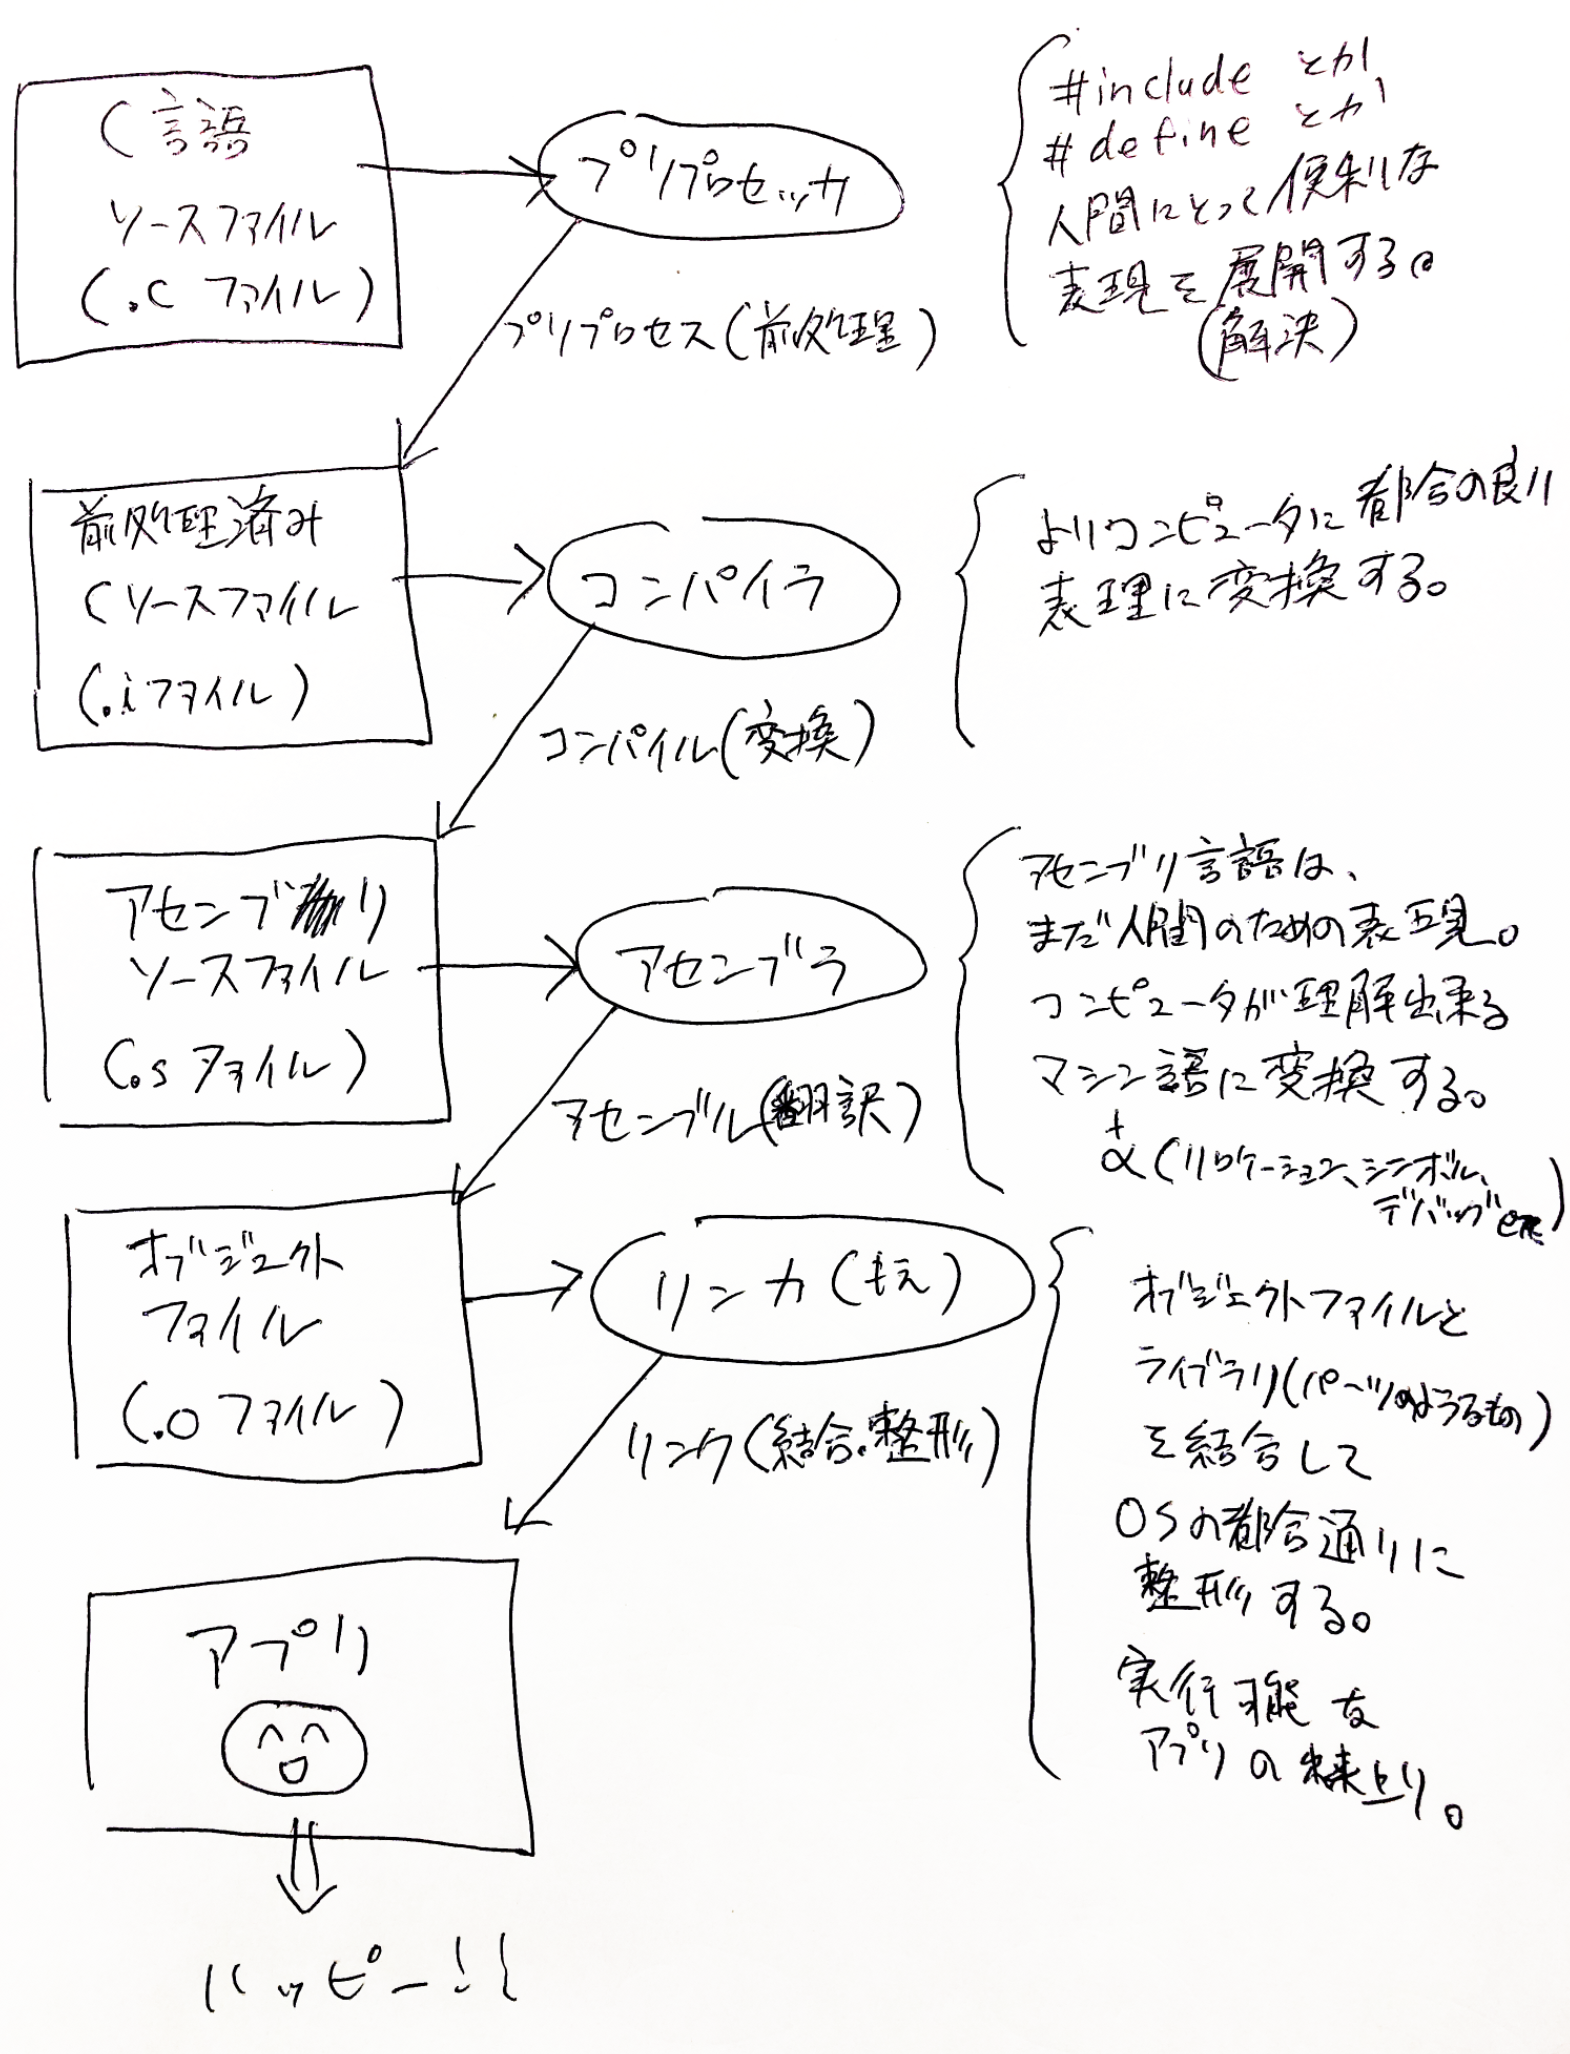 C言語
ソースファイル
(.c ファイル)
プリプロセッサ
プリプロセス(前処理)
#include とか、
#define とか
人間にとって便利な
表現を展開する。
(解決)
前処理済み
Cソースファイル
(.iファイル)
コンパイラ
コンパイル(変換)
よりコンピュータに都合の良い
表理に変換する。
アセンブリ
ソースファイル
(.s ファイル)
アセンブラ
アセンブル(翻訳)
アセンブリ言語は、
まだ人間のための表現。
コンピュータが理解出来る
マシン語に変換する。
+
α(リロケーション、シンボル、
デバッグetc)
オブジェクト
ファイル
(.o ファイル)
リンカ(もえ)
リンク(結合・整形)
オブジェクトファイルと
ライブラリ(パーツのようなもの)
を結合して
OSの都合通りに
整形する。
実行可能な
アプリの出来上り。
アプリ
ハッピー!!